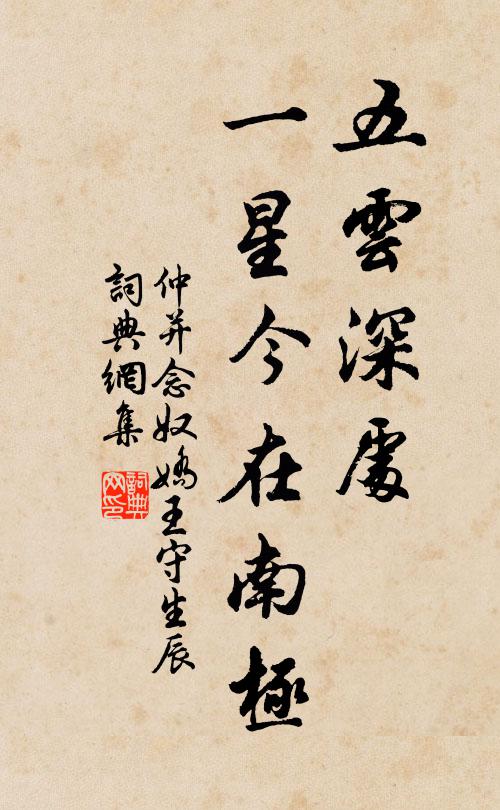 五雲深處
一星今在南極
仲并念奴嬌王守生辰
詞典網集
詞典
网印